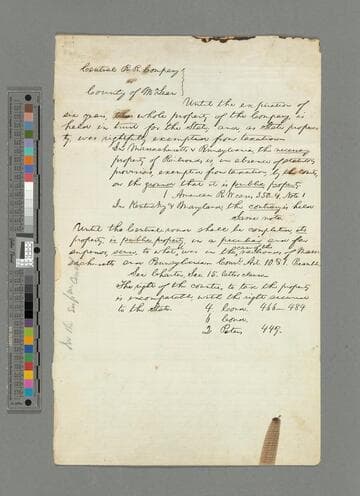 Central R.R. Company
vs
County of McLean
Until the expiration of
six years, the whole property of the Company is
held in trust for the State, and as State proper-
ty, was rightfully exemption from taxation.
In Massachusetts & Pennsylvania, the necessary
property of Railroads is, in absence of statutory
provision, exemption from taxation, by the courts,
on the ground that it is public property
1 American R.R. Cases, 350. & Note 1
In Kentucky & Maryland the contrary is held
same note
Until the Central road shall be completed, its
property is public property in a peculiar and far
superior sense to what was in the railroads of Massa-
chusetts and Pennsylvania
See Charter, Sec 15. latter clause
The right of the counties to tax the property
is incompatable with the right secured
to the State.
4 Cond. 466 — 489
6 Cond.
2 Peters 449.